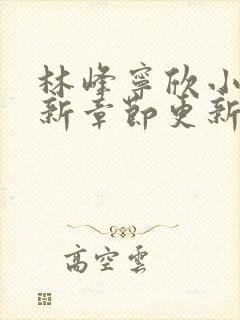 林峰寧欣小
新章節更新
高空雲